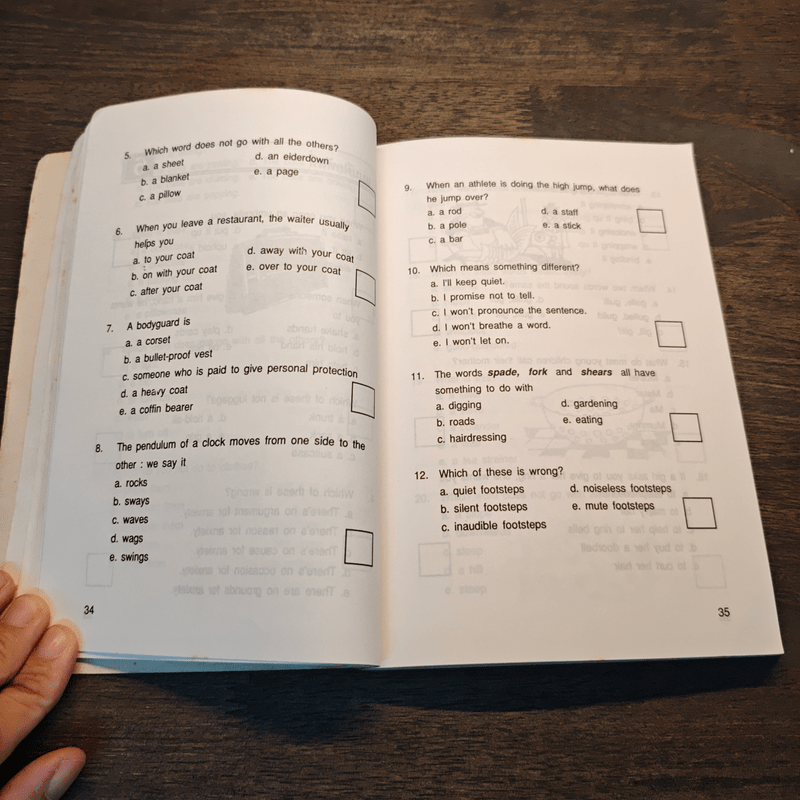 5. Which word does not go with all the others?
a. a sheet
b. a blanket
c. a pillow
d. an eiderdown
e. a page
6. When you leave a restaurant, the waiter usually
helps you
a. to your coat
b. on with your coat
c. after your coat
d. away with your coat
e. over to your coat
7. A bodyguard is
a. a corset
b. a bullet-proof vest
c. someone who is paid to give personal protection
d. a heavy coat
e. a coffin bearer
8. The pendulum of a clock moves from one side to the
other : we say it
a. rocks
b. sways
c. waves
d. wags
e. swings
34
9. When an athlete is doing the high jump, what does
he jump over?
a. a rod
b. a pole
c. a bar
d. a staff
e. a stick
10. Which means something different?
a. I'll keep quiet.
b. I promise not to tell.
c. I won't pronounce the sentence.
d. I won't breathe a word.
e. I won't let on.
11. The words spade, fork and shears all have
something to do with
a. digging
b. roads
c. hairdressing
d. gardening
e. eating
12. Which of these is wrong?
a. quiet footsteps
b. silent footsteps
c. inaudible footsteps
d. noiseless footsteps
e. mute footsteps
35